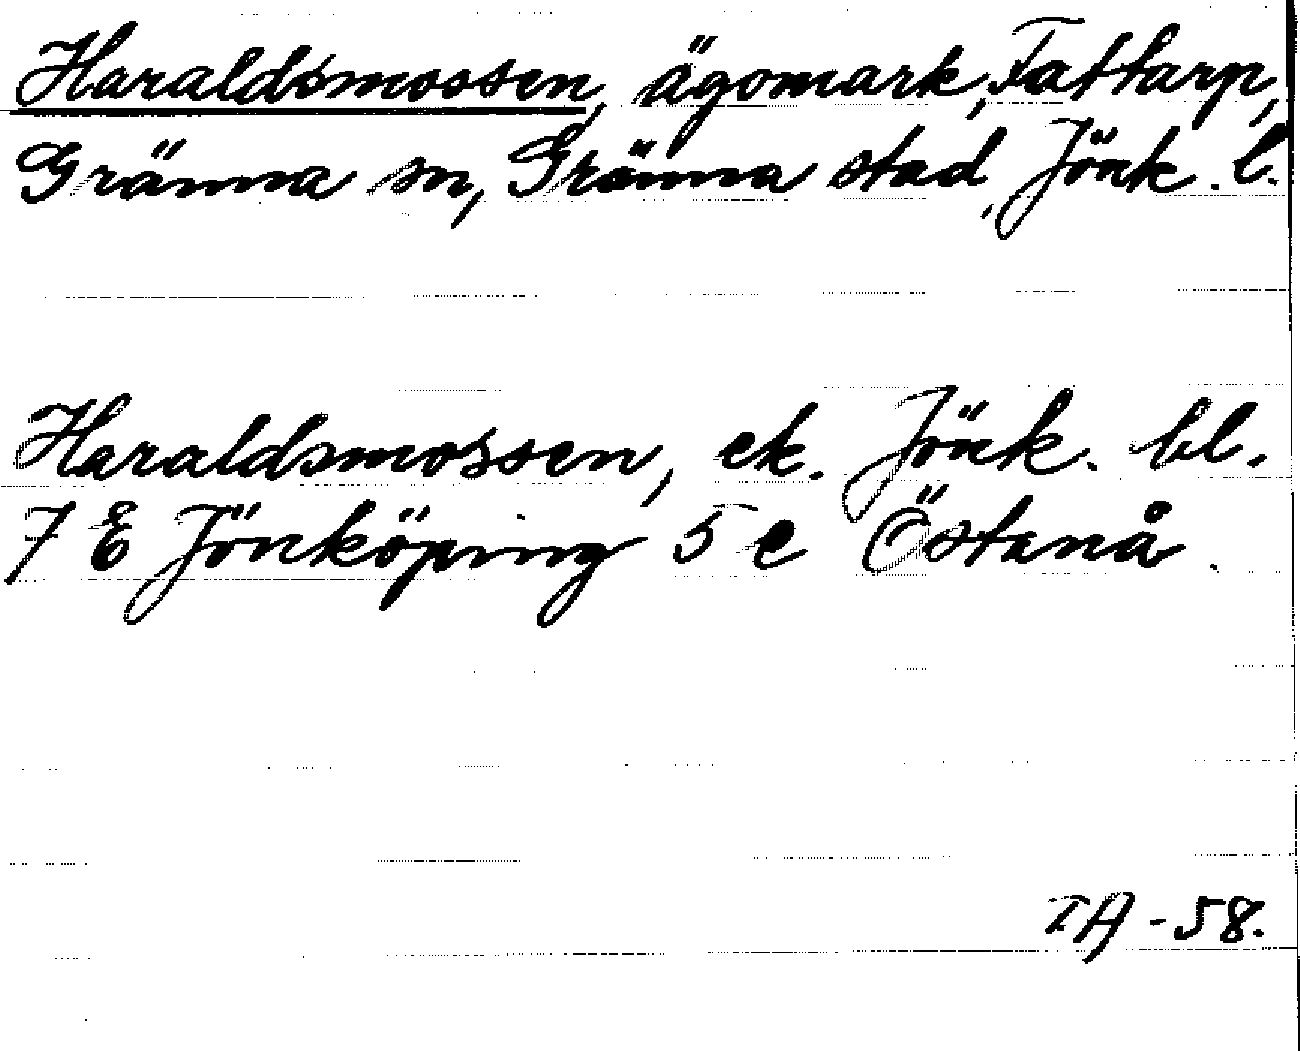 Haraldsmossen, ägomark, Fattarp,
Gränna sn, Gränna stad, Jönk. l.
Haraldsmossen, ek. Jönk. bl.
7 E Jönköping 5 e Östanå.
TA - 58.